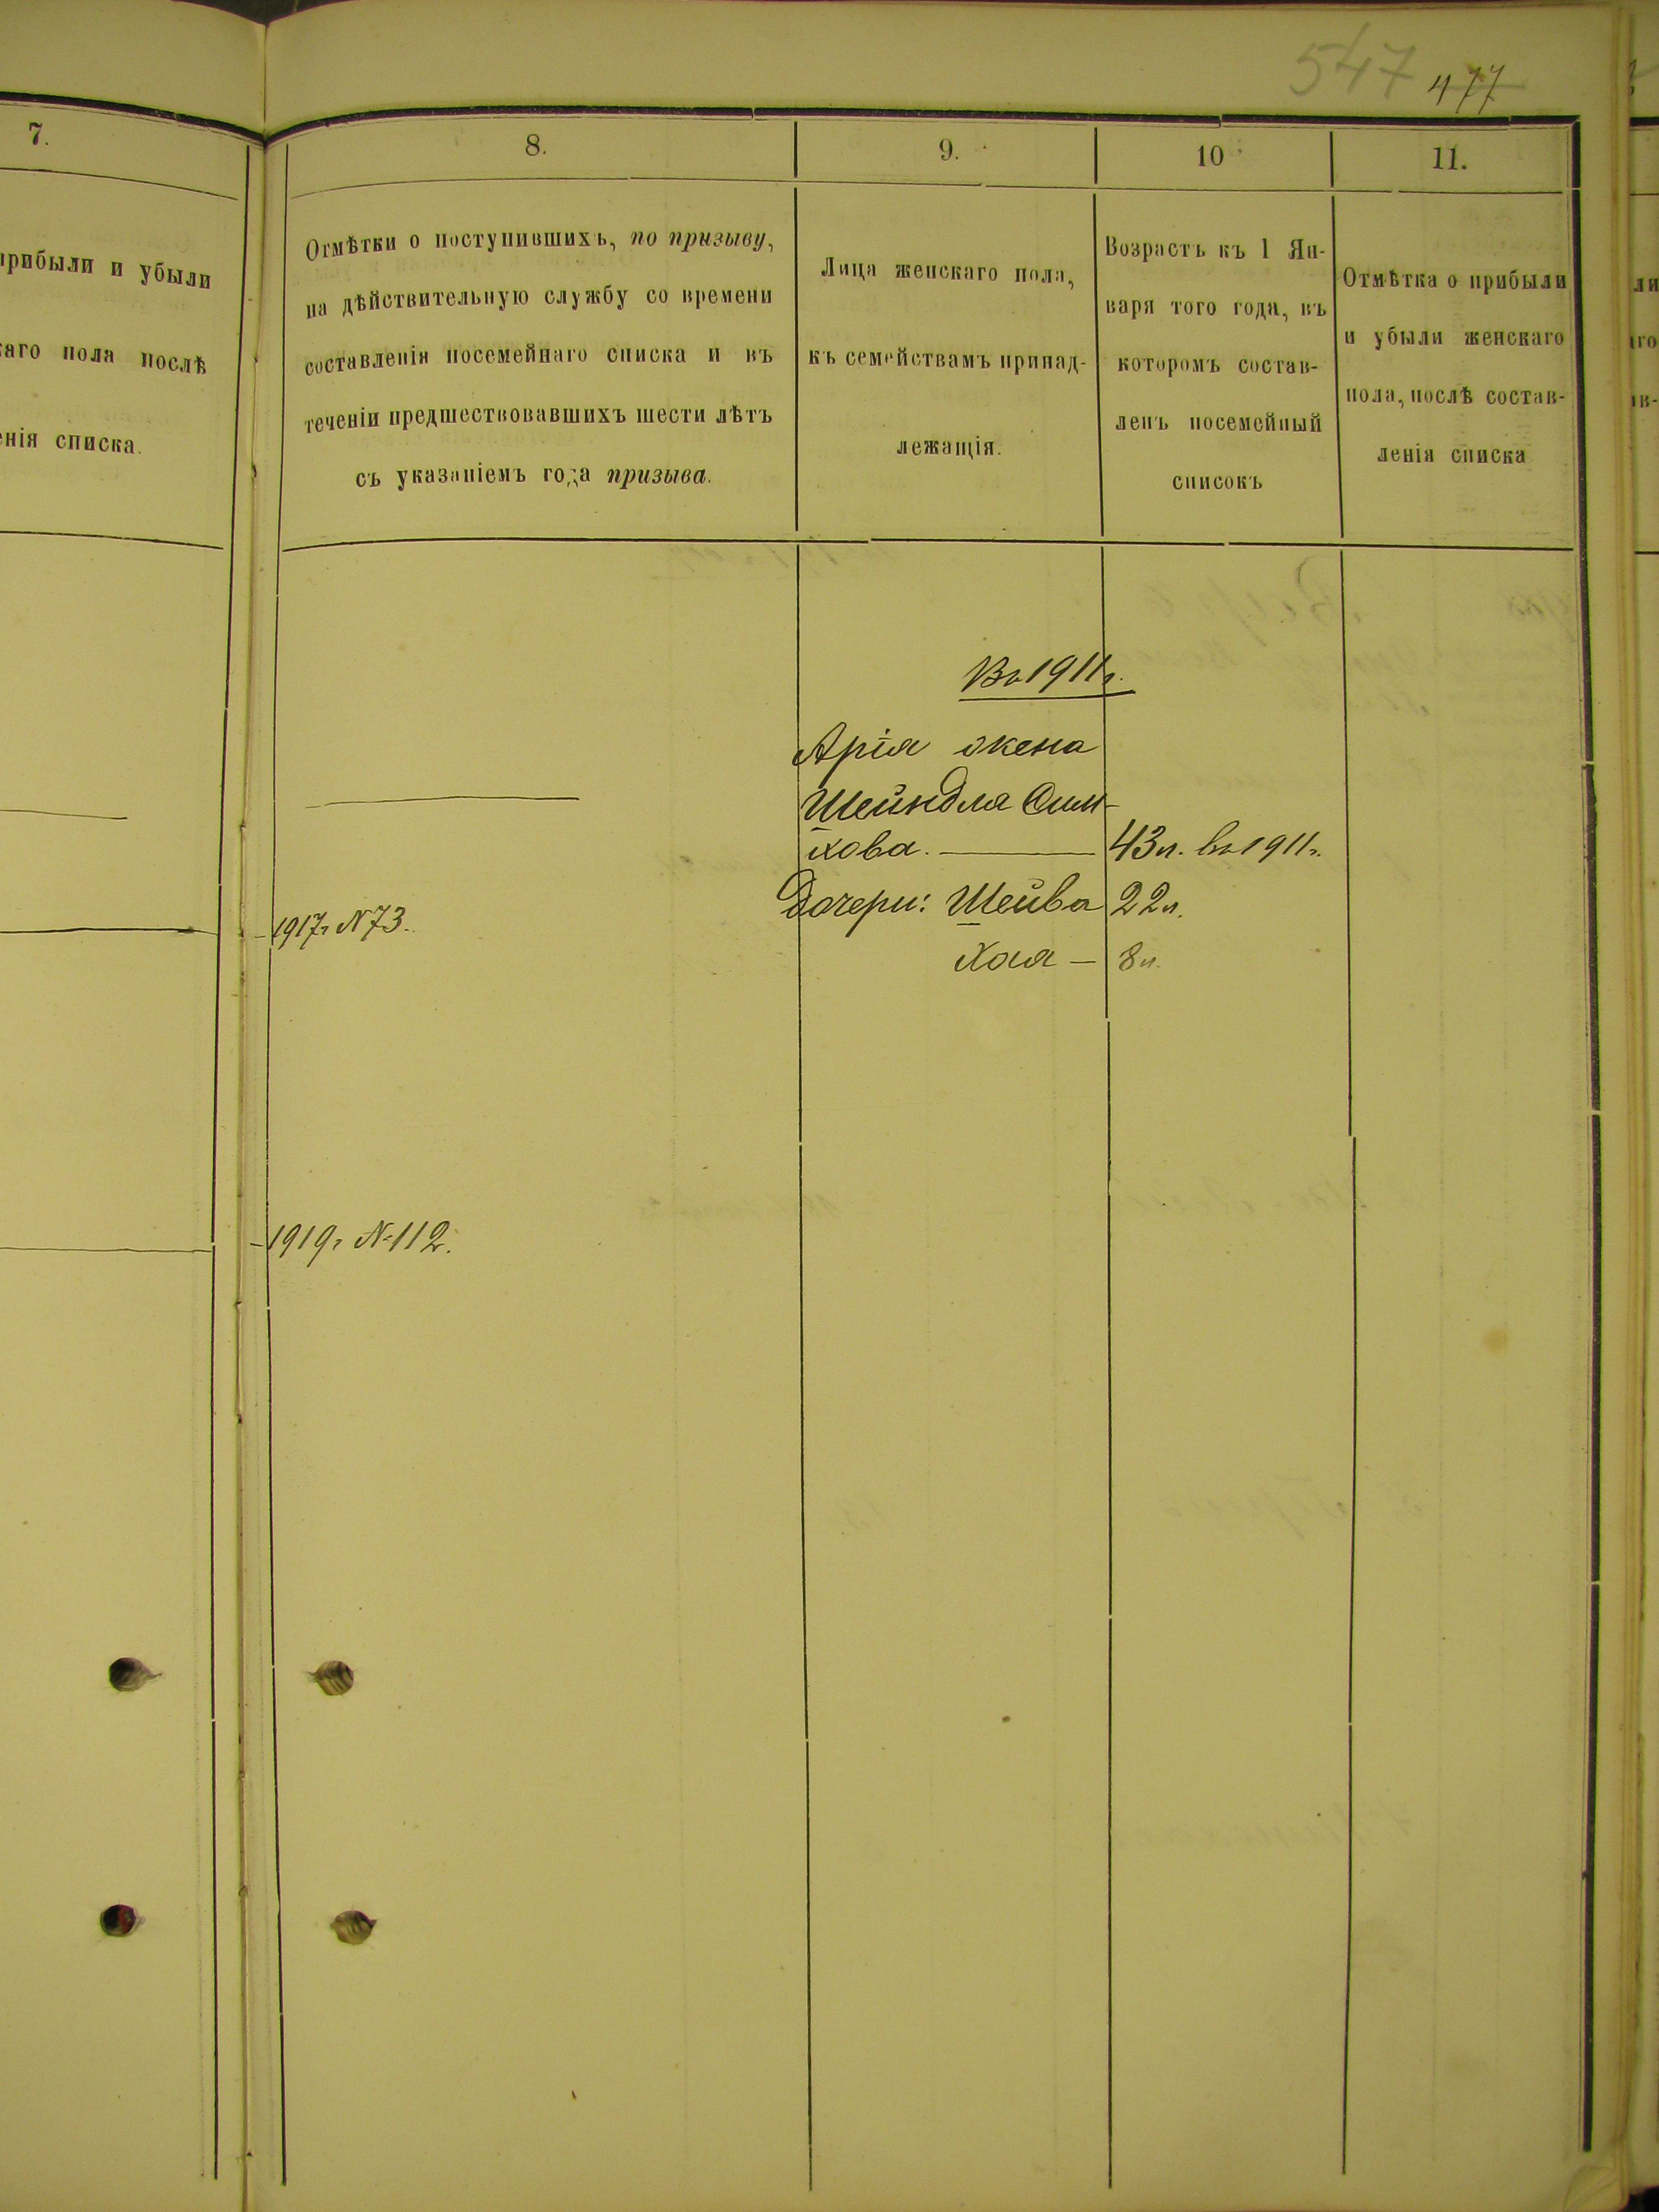 547 477
7.
прибыли и убыли
каго пола послѣ
енія списка.
8.
Отмѣтки о поступившихъ, по призыву,
на дѣйствительную службу со времени
составленія посемейнаго списка и въ
теченіи предшествовавшихъ шести лѣтъ
съ указаніемъ года призыва.
9.
Лица женскаго пола,
къ семействамъ принад-
лежащія.
10
Возрастъ къ 1 Ян-
варя того года, въ
которомъ состав-
ленъ посемейный
списокъ
11.
Отмѣтка о прибыли
и убыли женскаго
пола, послѣ состав-
ленія списка
Въ 1911 г.
Арія жена
Шейндля Сим-
хова. — 43 л. въ 1911 г.
Дочери: Шейва 22 л.
Хая — 8 л.
1917 г. № 73.
1919 г. № 112.